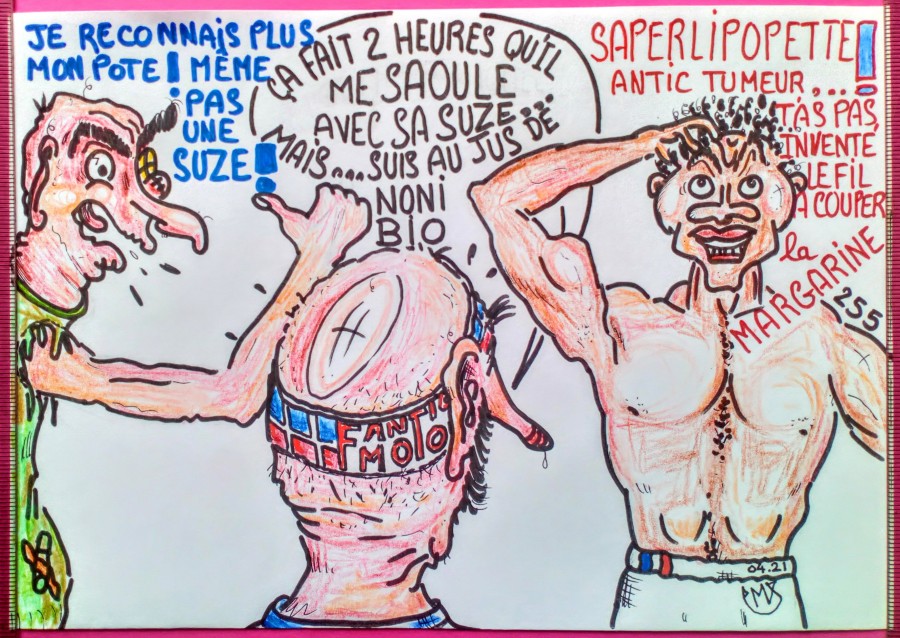 JE RECONNAIS PLUS
MON POTE ! MÊME
PAS
UNE
SUZE !
ÇA FAIT 2 HEURES QU'IL
ME SAOULE
AVEC SA SUZE...
MAIS....SUIS AU JUS DE
NONI
BIO
SAPERLIPOPETTE !
ANTIC TUMEUR,...
T'AS PAS
INVENTE
LE FIL
A COUPER
la
MARGARINE
255
FANTIC
MOTO
04.21